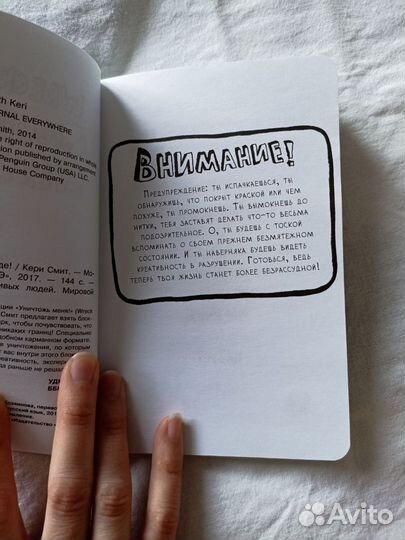 th Keri
RNAL EVERYWHERE
mith, 2014
right of reproduction in whole
ion published by arrangement
Penguin Group (USA) LLC.
House Company
де! / Кери Смит. — Мо-
Э», 2017. — 144 с. —
ивых людей. Мировой
ции «Уничтожь меня!» (Wreck
Смит предлагает взять блок-
арк, чтобы почувствовать,
никаких границ! Специально
добном карманном формате.
я уничтожения, по которым
ут вас внутри этого бло
еативность, экспер
да раньше не решал
УД
ББ
Внимание!
Предупреждение: ты испачкаешься, ты
обнаружишь, что покрыт краской или чем
похуже, ты промокнешь. Ты вымокнешь до
нитки, тебя заставят делать что-то весьма
подозрительное. О, ты будешь с тоской
вспоминать о своем прежнем безмятежном
состоянии. И ты наверняка будешь видеть
креативность в разрушении. Готовься, ведь
теперь твоя жизнь станет более безрассудной!
Avito